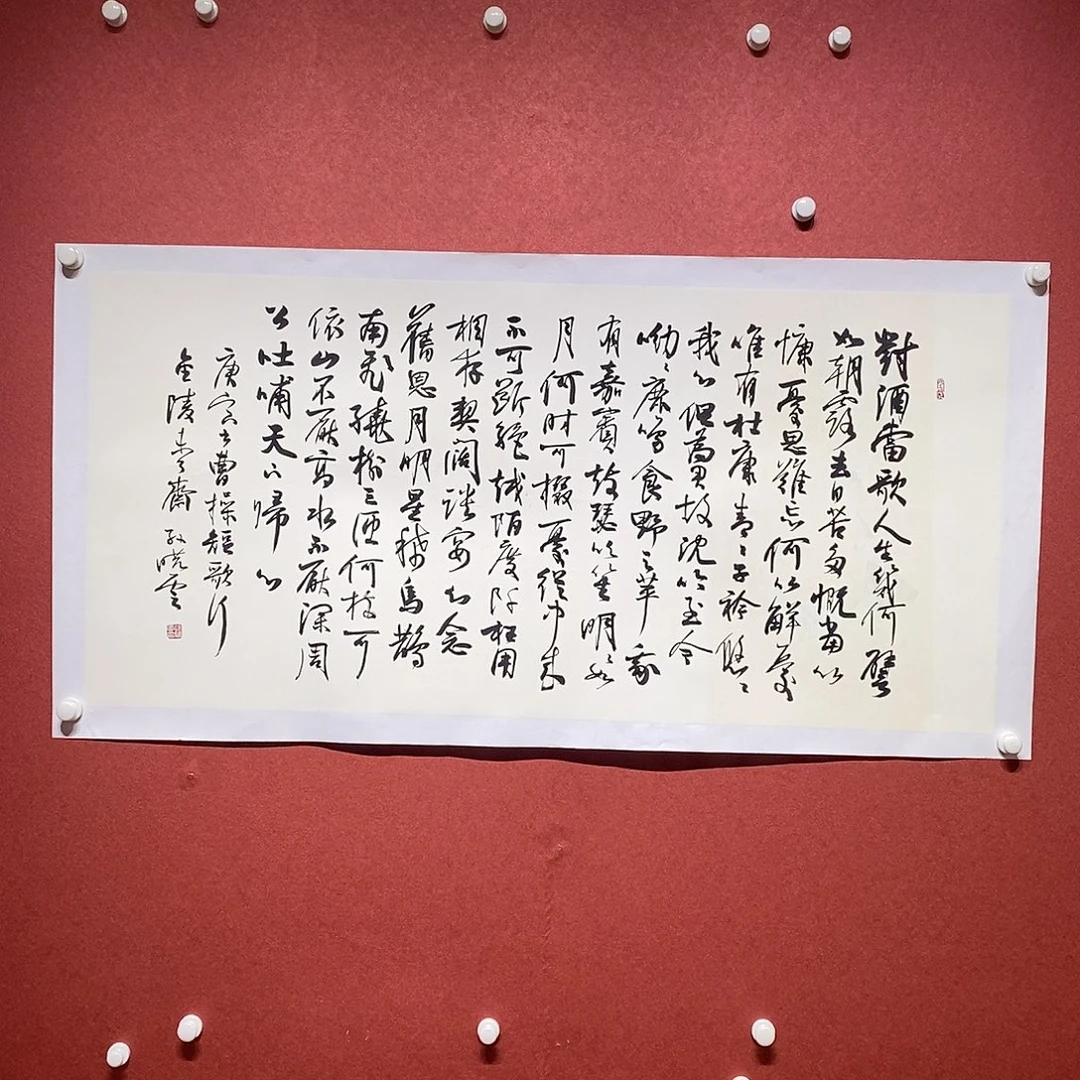 對酒當歌人生幾何譬
如朝露去日苦多慨當以
慷憂思難忘何以解憂
唯有杜康青〻子衿悠〻
我心但為君故沈吟至今
呦〻鹿鳴食野之苹我
有嘉賓鼓瑟吹笙明〻如
月何時可掇憂從中來
不可斷絕越陌度阡枉用
相存契闊談宴心念
舊恩月明星稀烏鵲
南飛繞樹三匝何枝可
依山不厭高水不厭深周
公吐哺天下歸心
庚寅書曹操短歌行
金陵 齋 孫曉雲